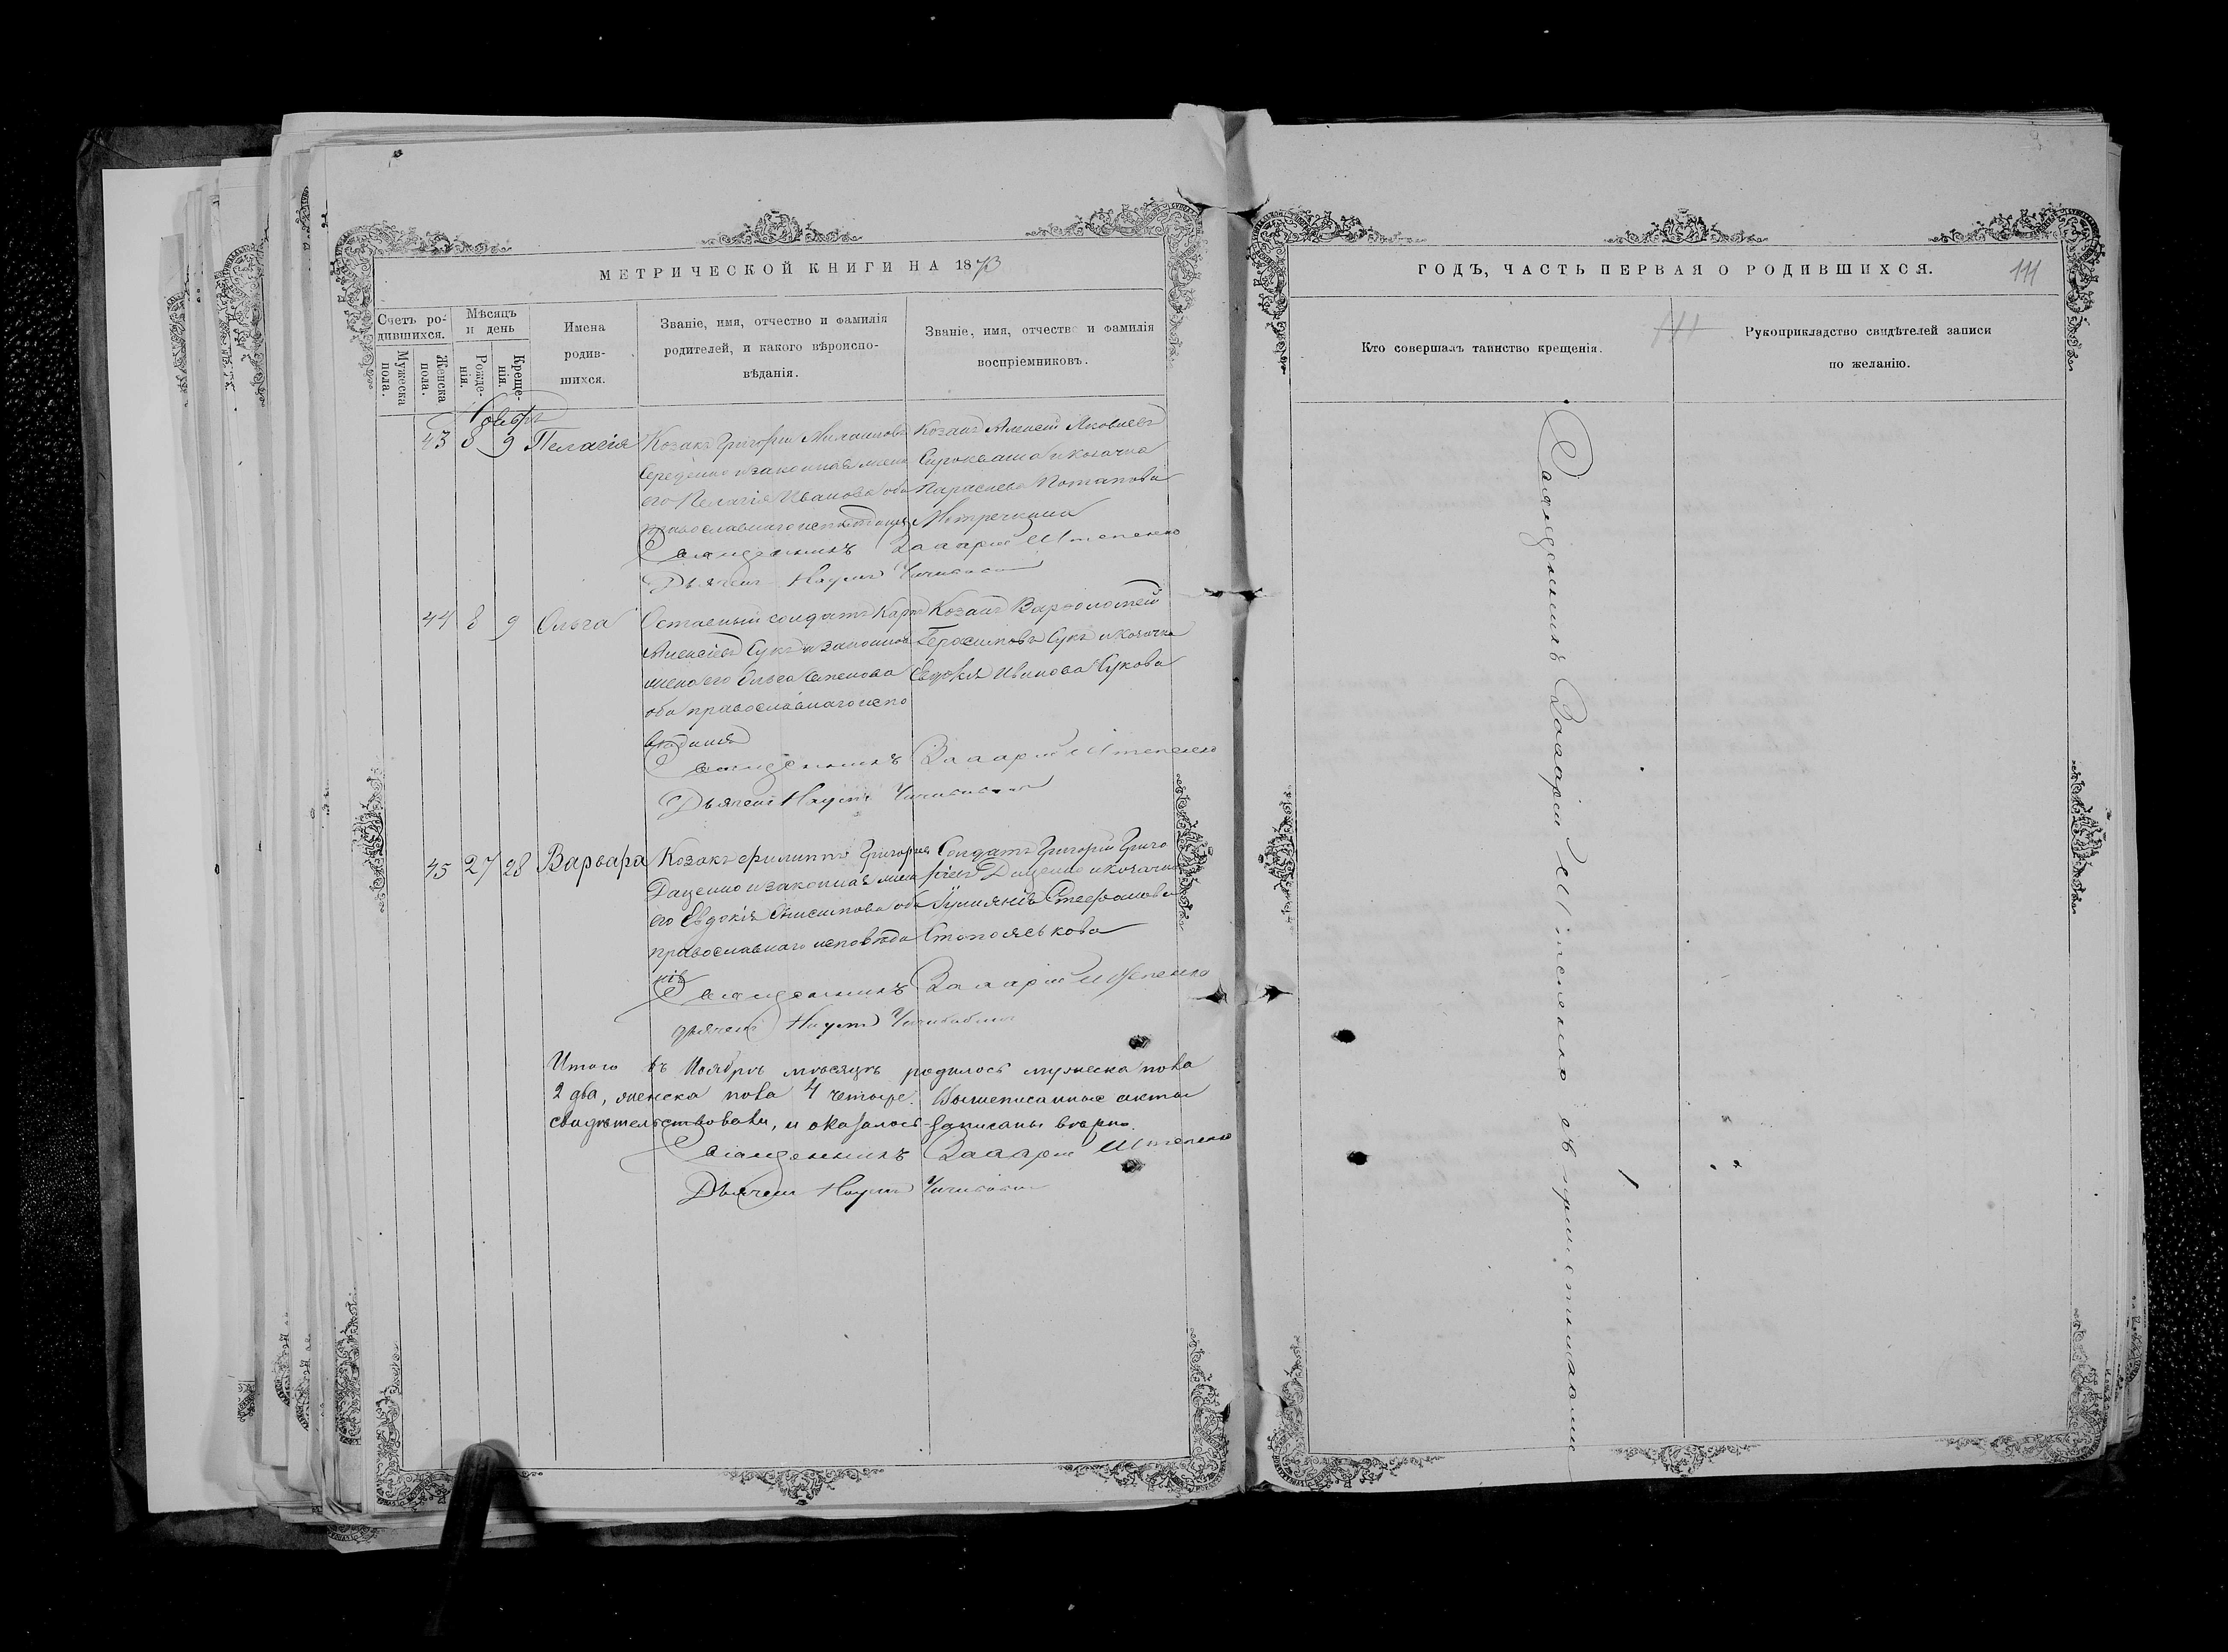 МЕТРИЧЕСКОЙ КНИГИ НА 1873
Счетъ ро-
дившихся.
Мужеска
пола.
Женска
пола.
Мѣсяцъ
и день
Рожде-
нія.
Креще-
нія.
Имена
родив-
шихся.
Званіе, имя, отчество и фамилія
родителей, и какого вѣроиспо-
вѣданія.
Званіе, имя, отчество и фамилія
воспріемниковъ.
43 8 9 Пелагія
Козакъ Григорій
и законная жена
его Пелагія Иванова оба
православнаго
Козакъ Алексѣй Яковлевъ
Сирокваша и козачка
Параскева Потапова
Священникъ Захарій Штепенко
Дьячекъ Наумъ
44 8 9 Ольга
солдатъ Карпъ
Алексѣевъ Сукъ и законная
жена его Ольга Семенова
оба православнаго испо
вѣданія
Козакъ Варфоломей
Герасимовъ Сукъ и козачка
Евдокія Иванова Сукова
Священникъ Захарій Штепенко
Дьячекъ Наумъ
45 27 28 Варвара
Козакъ Филиппъ Григорьевъ
Даценко и законная жена
его Евдокія Онисимова оба
православнаго исповѣда
нія
Солдатъ Григорій Григо
рьевъ Даценко и козачка
Стефанова
Священникъ Захарій Штепенко
Дьячекъ Наумъ
Итого въ Ноябрѣ мѣсяцѣ родилось мужеска пола
2 два, женска пола 4 четыре. Вышеписанные акты
свидѣтельствовали, и оказалось записаны вѣрно.
Священникъ Захарій Штепенко
Дьячекъ Наумъ
ГОДЪ, ЧАСТЬ ПЕРВАЯ О РОДИВШИХСЯ.
111
Кто совершалъ таинство крещенія.
111
Рукоприкладство свидѣтелей записи
по желанію.
Священникъ Захарій Штепенко съ причетниками